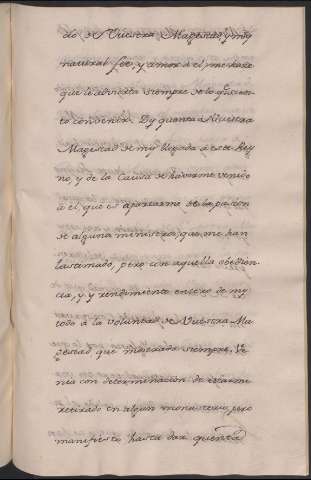 do de Vuestra Magestad, y muy
natural fee, y amor à el, me hace
que le advierta siempre de lo que en es
to conviene. Doy quenta à Nuestra
Magestad de mi llegada à este Rey
no, y de la Causa de haverme venido
à él, que es apartarme de la pasion
de algunos ministros, que me han
lastimado, pero con aquella obedien
cia, y rendimiento entero de my
todo à la voluntad, de Vuestra Ma
gestad que mostrada siempre, Ve
nia con determinacion de estarme
retirado en algun monasterio, pero
manifiesto hasta dar quenta